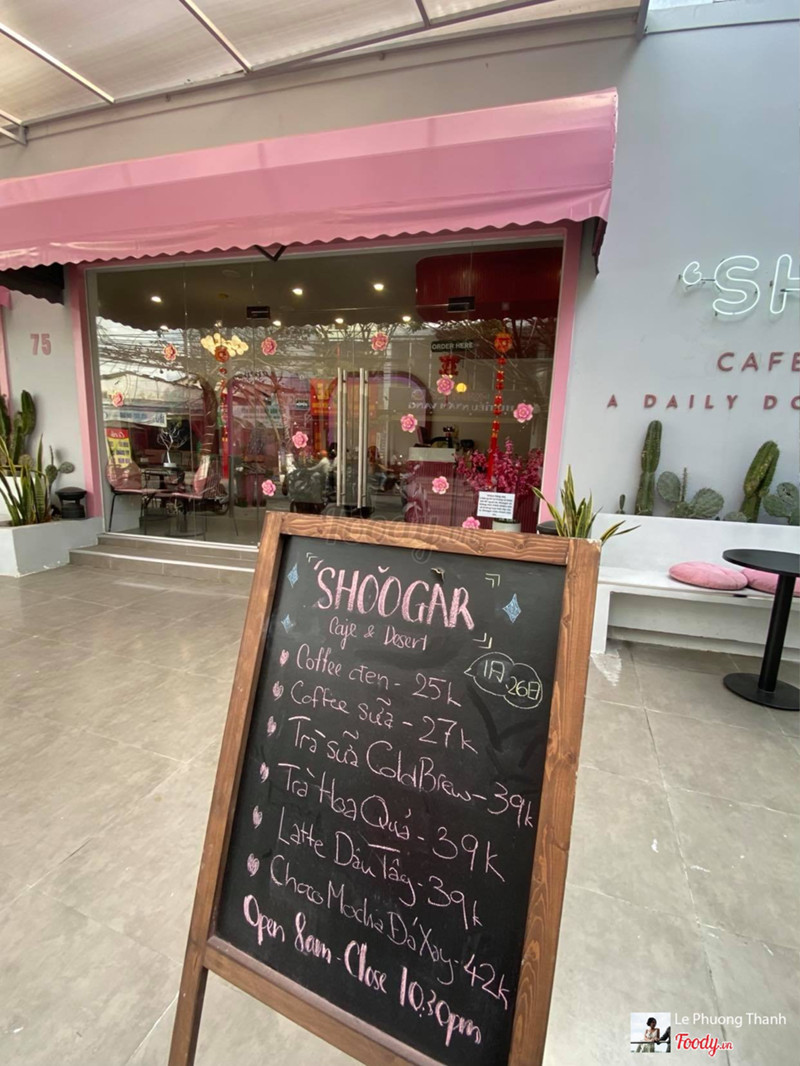 75
ORDER HERE
SH
CAFE
A DAILY DO
SHOOGAR
Cafe & Desert
1月
26日
Coffee đen - 25k
Coffee sữa - 27k
Trà sữa ColdBrew - 39k
Trà Hoa Quả - 39k
Latte Dâu Tây - 39k
Choco Mocha Đá Xay - 42k
Open 8am - Close 10:30pm
Foody.vn
Le Phuong Thanh
Foody.vn